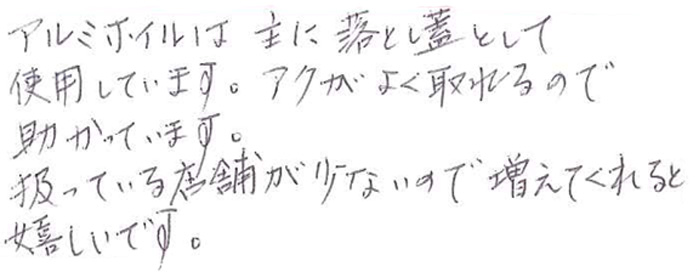 アルミホイルは主に落とし蓋として
使用しています。アクがよく取れるので
助かっています。
扱っている店舗が少ないので増えてくれると
嬉しいです。